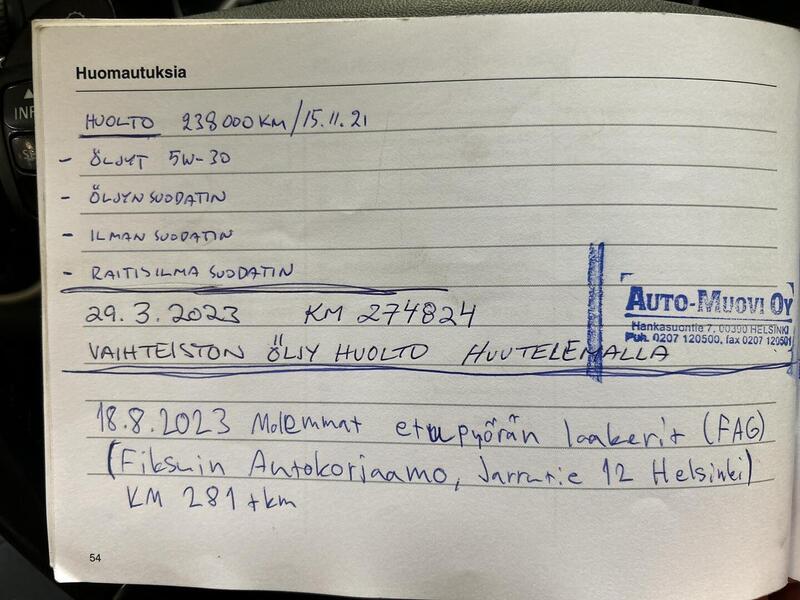 Huomautuksia
HUOLTO 238000KM/15.11.21
- ÖLJYT 5W-30
- ÖLJYNSUODATIN
- ILMANSUODATIN
- RAITISILMASUODATIN
29.3.2023 KM 274824
AUTO-MUOVI OY
Hankasuontie 7, 00390 HELSINKI
Puh. 0207 120500, fax 0207 120501
VAIHTEISTON ÖLJY HUOLTO HUUTELEMALLA
18.8.2023 Molemmat etupyörän laakerit (FAG)
(Fiksuin Autokorjaamo, Jarrutie 12 Helsinki)
KM 281 tkm
54